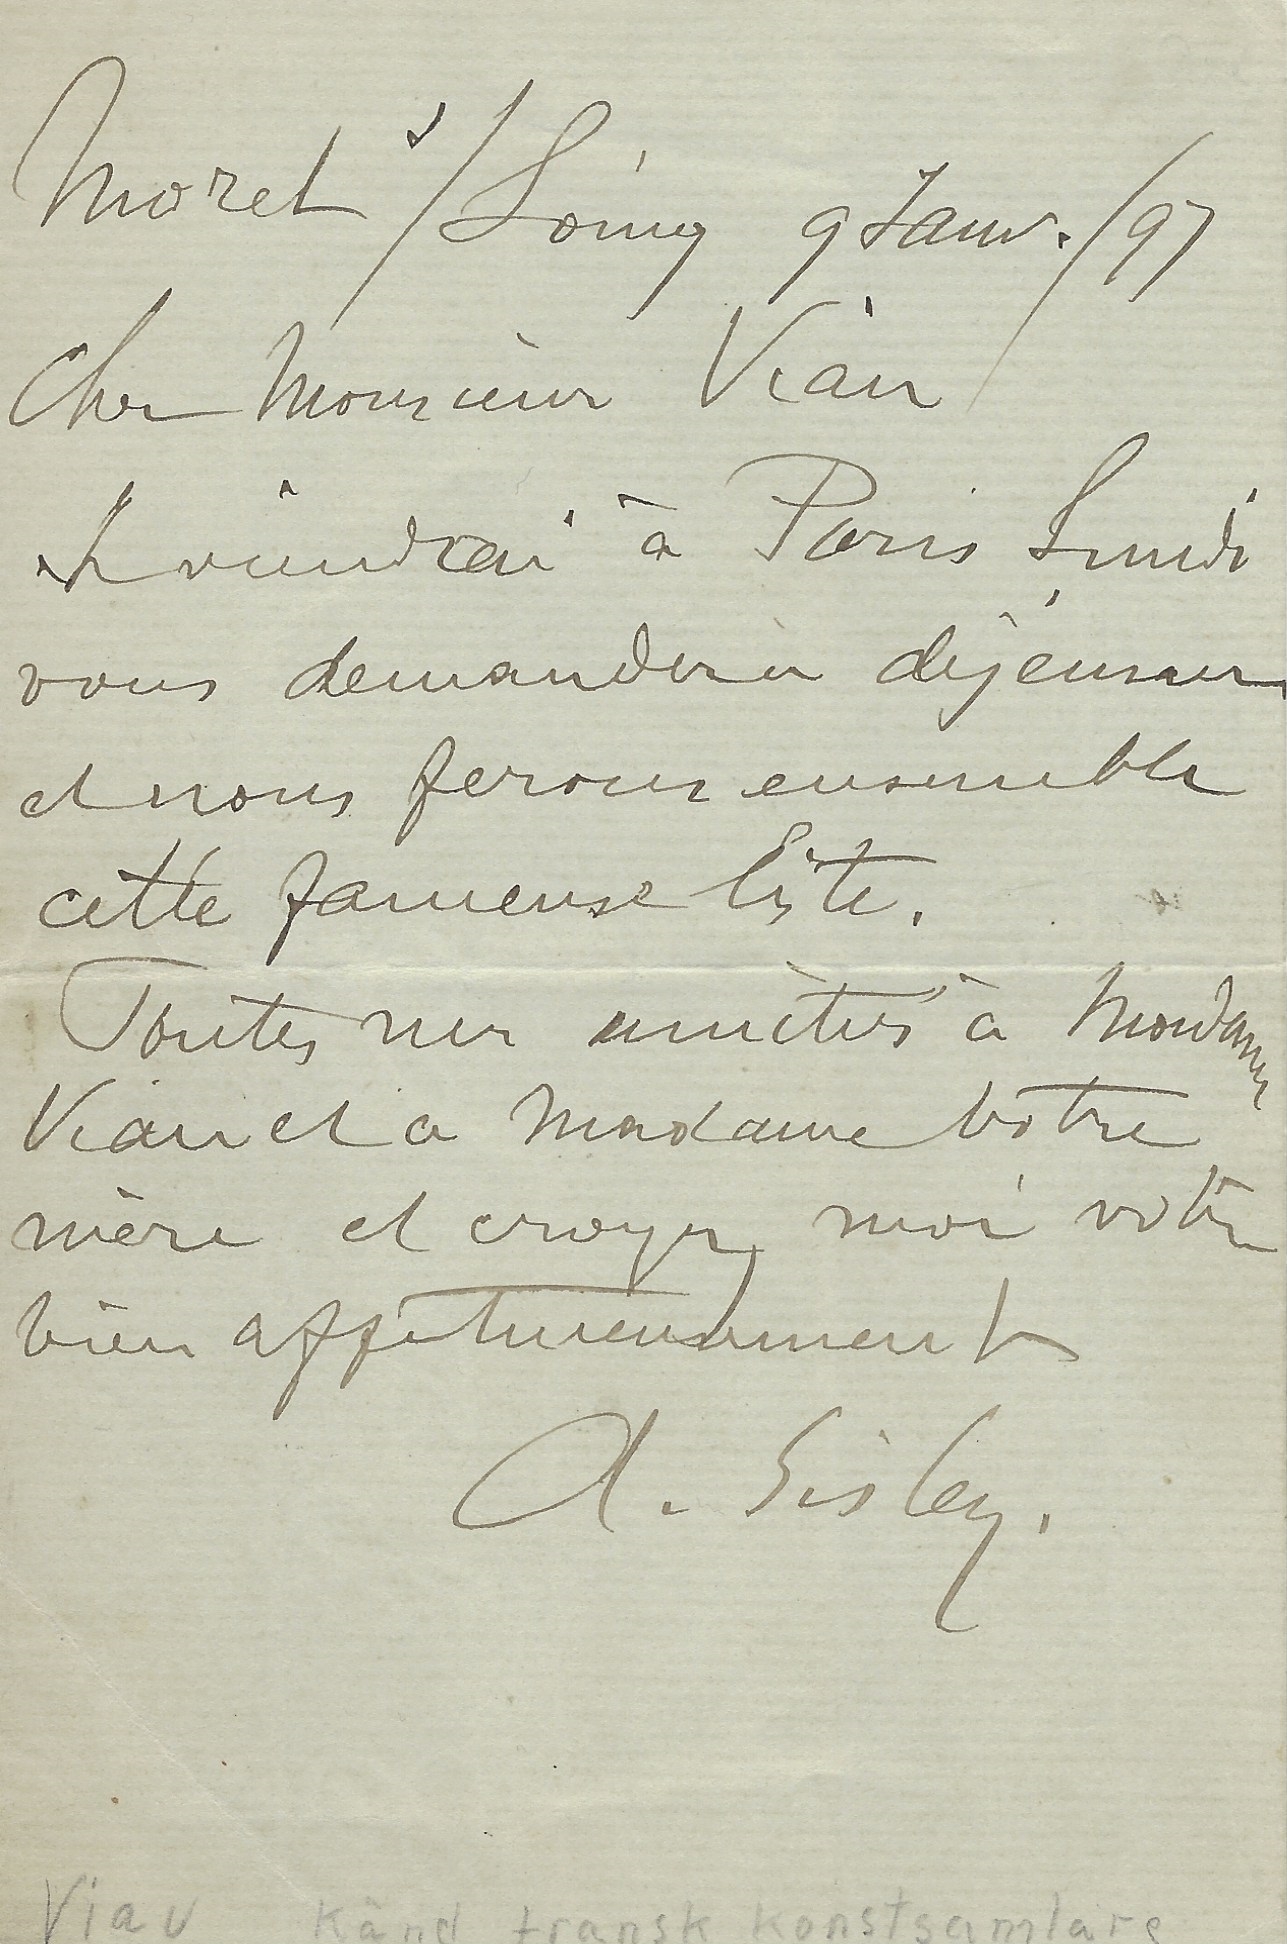 Moret s/Loing 9 Janv. /97
Cher Monsieur Viau
Je viendrai à Paris Lundi
vous demander à déjeuner
et nous ferons ensemble
cette fameuse liste.
Toutes mes amitiés à Madame
Viau et a Madame votre
mère et croyez moi votre
bien affectueusement
A. Sisley.
Viau känd fransk konstsamlare